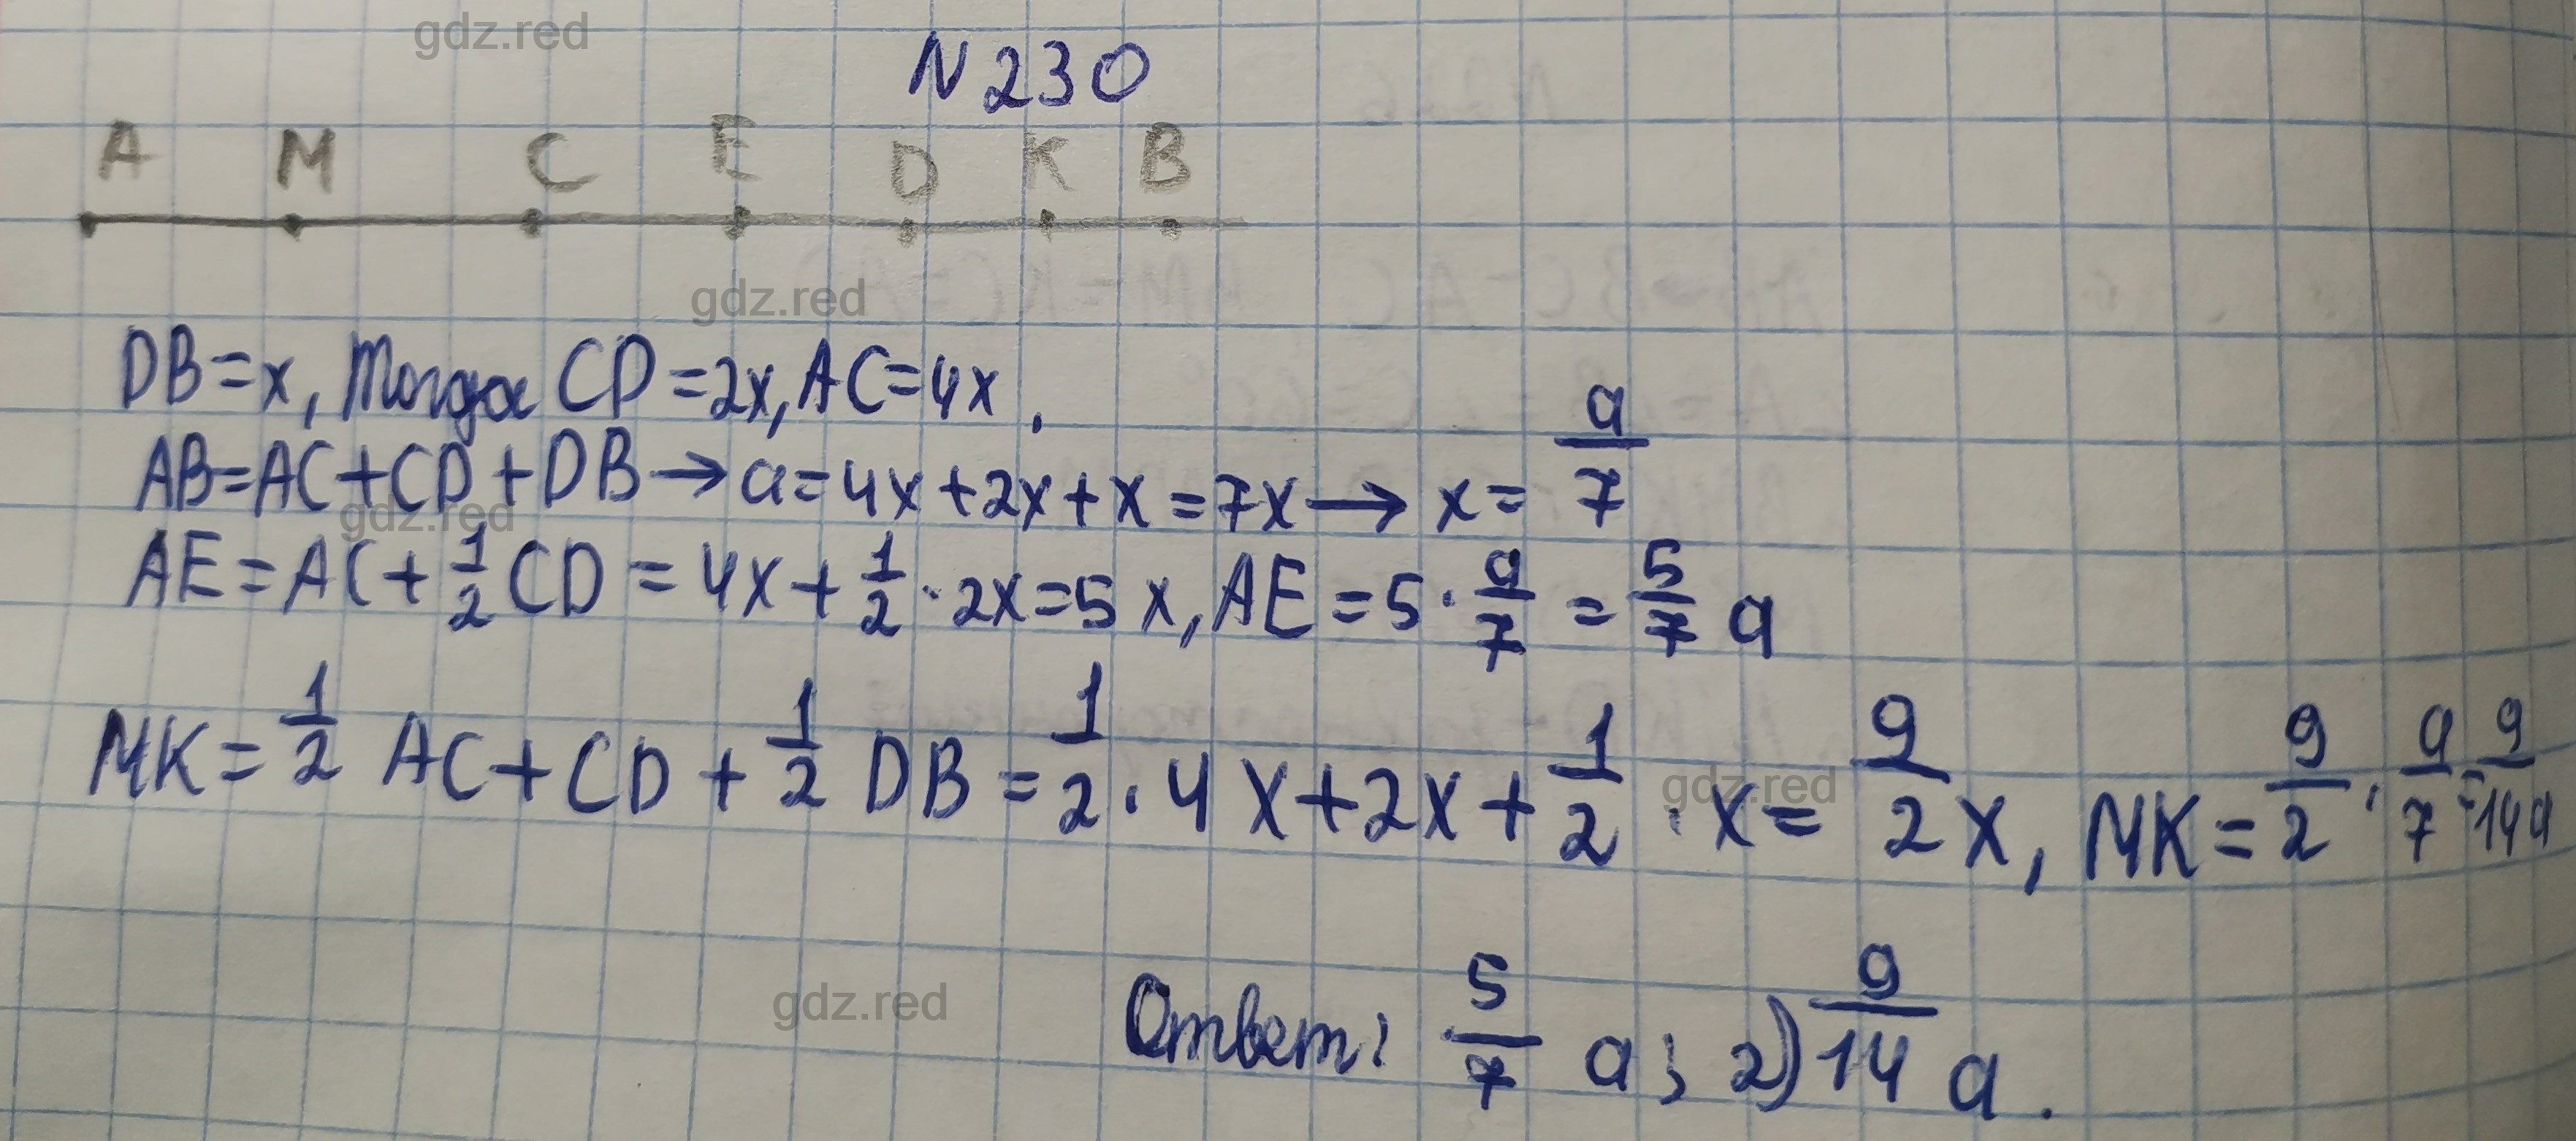 gdz.red
N 230
A M C E D K B
gdz.red
DB=x, тогда CD=2x, AC=4x.
AB=AC+CD+DB→a=4x+2x+x=7x→x=a/7
gdz.red
AE=AC+1/2CD=4x+1/2·2x=5x, AE=5·a/7=5/7a
MK=1/2AC+CD+1/2DB=1/2·4x+2x+1/2·x=9/2x, MK=9/2·a/7=9/14a
gdz.red
gdz.red
Ответ: 5/7a; 2) 9/14a.